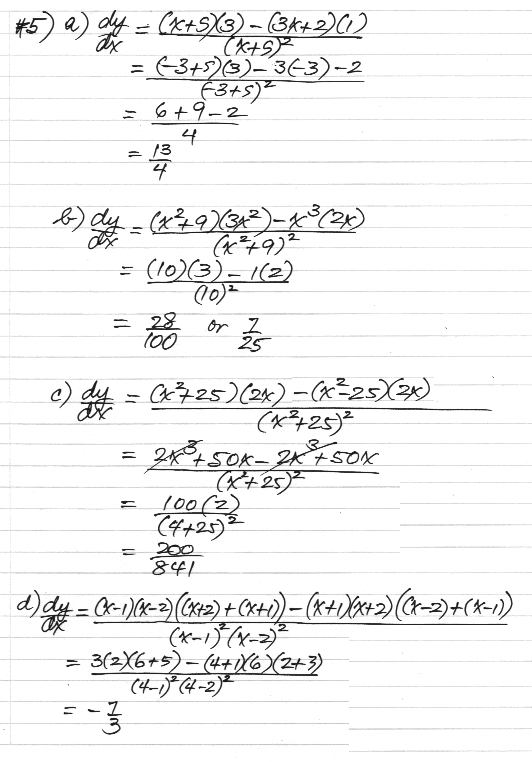 #5) a) dy/dx = (x+5)(3) - (3x+2)(1) / (x+5)²
= (-3+5)(3) - 3(-3) - 2 / (-3+5)²
= 6+9-2 / 4
= 13/4
b) dy/dx = (x²+9)(3x²) - x³(2x) / (x²+9)²
= (10)(3) - 1(2) / (10)²
= 28/100 or 7/25
c) dy/dx = (x²+25)(2x) - (x²-25)(2x) / (x²+25)²
= 2x³+50x - 2x³+50x / (x²+25)²
= 100(2) / (4+25)²
= 200/841
d) dy/dx = (x-1)(x-2)((x+2)+(x+1)) - (x+1)(x+2)((x-2)+(x-1)) / (x-1)²(x-2)²
= 3(2)(6+5) - (4+1)(6)(2+3) / (4-1)²(4-2)²
= -7/3